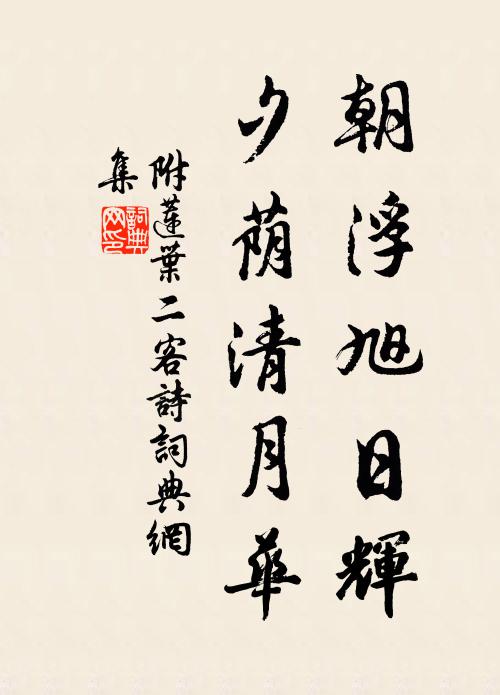 朝浮旭日輝
夕蔭清月華
附蓮葉二客詩詞典網
集
詞典网印